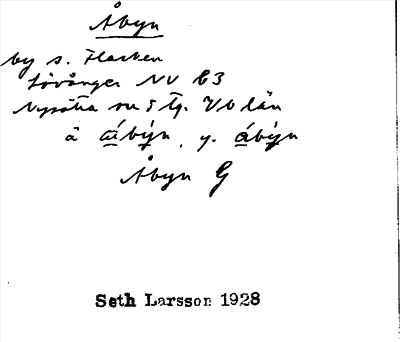 Åbyn
by s. Flarken
Lövånger NV C3
Nysätra sn o tg. Vb län
ä åbýn, y. åbýn
Åbyn G
Seth Larsson 1928